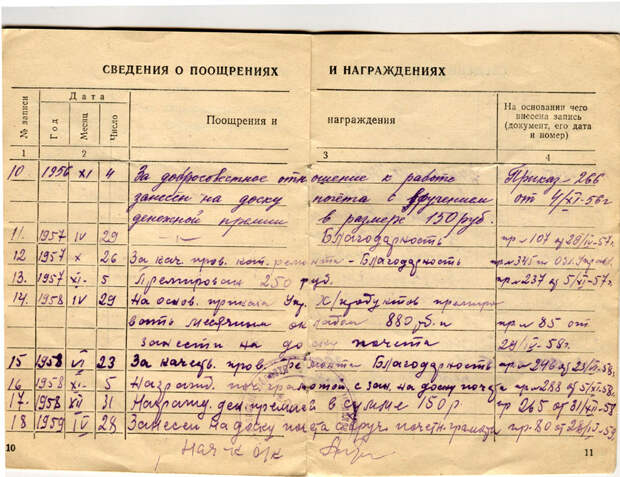 СВЕДЕНИЯ О ПООЩРЕНИЯХ И НАГРАЖДЕНИЯХ
№ записи Дата Поощрения и награждения На основании чего внесена запись (документ, его дата и номер)
Год Месяц Число
1 2 3 4
10. 1956 XI 4 За добросовестное отношение к работе Приказ-266
занесен на доску почёта с вручением от 4/XI-56г
денежной премии в размере 150 руб.
11. 1957 IV 29 —"— Благодарность пр 107 от 29/IV-57г.
12 1957 X 26 За кач. пров. кап. ремонта - Благодарность пр№345 по
13. 1957 XI- 5 Премирован 250 руб. пр№237 от 5/XI-57г.
14. 1958 IV 29 На основ. приказа Упр. Х/продуктов премиро
вать месячным окладом 880 руб. и пр № 85 от
занести на доску почёта 29/IV-58г.
15 1958 VI 23 За качеств. пров. ремонта Благодарность пр 246 от 23/VI-58г.
16 1958 XI- 5 Награжд. поч. грамотой с зан. на доску почёта пр№288 от 5/XI-58г.
17- 1958 XII 31 Награжд. ден. премией в сумме 150 р пр 265 от 31/XII-
18 1959 IV 28 Занесен на доску почёта с вруч. почетн. грамоты пр. 80 от 28/IV-59
Нач-к О/К
10 11